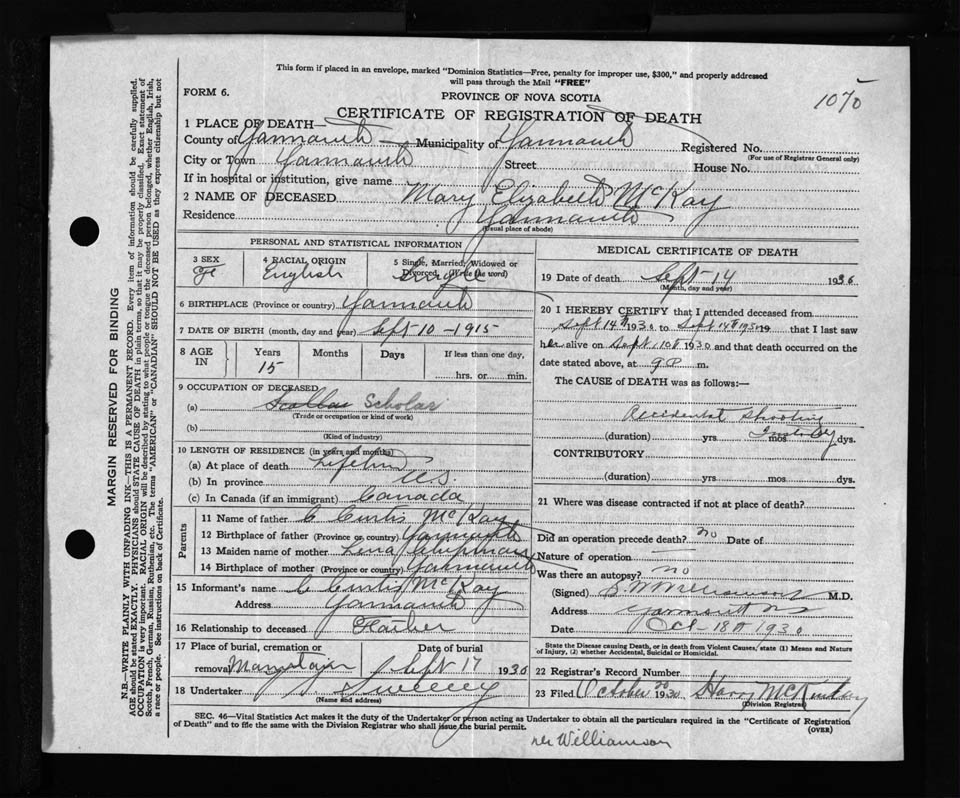 This form if placed in an envelope, marked "Dominion Statistics—Free, penalty for improper use, $300," and properly addressed
will pass through the Mail "FREE"
FORM 6.
PROVINCE OF NOVA SCOTIA
1070
CERTIFICATE OF REGISTRATION OF DEATH
1 PLACE OF DEATH—
County of Yarmouth Municipality of Yarmouth Registered No.
(For use of Registrar General only)
City or Town Yarmouth Street House No.
If in hospital or institution, give name
2 NAME OF DECEASED Mary Elizabeth McKay
Residence Yarmouth
(Usual place of abode)
PERSONAL AND STATISTICAL INFORMATION
3 SEX 4 RACIAL ORIGIN 5 Single, Married, Widowed or
Divorced, (Write the word)
F English Single
6 BIRTHPLACE (Province or country) Yarmouth
7 DATE OF BIRTH (month, day and year) Sept-10-1915
8 AGE IN Years Months Days If less than one day,
15 hrs. or min.
9 OCCUPATION OF DECEASED
(a) Scholar
(Trade or occupation or kind of work)
(b)
(Kind of industry)
10 LENGTH OF RESIDENCE (in years and months)
(a) At place of death Lifetime
(b) In province
(c) In Canada (if an immigrant) Canada
Parents
11 Name of father C Curtis McKay
12 Birthplace of father (Province or country) Yarmouth
13 Maiden name of mother Lena
14 Birthplace of mother (Province or country) Yarmouth
15 Informant's name C Curtis McKay
Address Yarmouth
16 Relationship to deceased Father
17 Place of burial, cremation or Date of burial
removal Sept 17 1930
18 Undertaker Sweeney
(Name and address)
MEDICAL CERTIFICATE OF DEATH
19 Date of death Sept-14 1930
(Month, day and year)
20 I HEREBY CERTIFY that I attended deceased from
Sept 14th 1930 to Sept 14th 1930 19 that I last saw
her alive on Sept 10th 1930 and that death occurred on the
date stated above, at 9 P. m.
The CAUSE of DEATH was as follows:—
Accident Shooting
(duration) yrs mos dys.
CONTRIBUTORY
(duration) yrs. mos dys.
21 Where was disease contracted if not at place of death?
Did an operation precede death? no Date of
Nature of operation
Was there an autopsy? no
(Signed) Williamson M.D.
Address Yarmouth NS
Date Oct-18th 1930
State the Disease causing Death, or in death from Violent Causes, state (1) Means and Nature
of Injury, (2) whether Accidental, Suicidal or Homicidal.
22 Registrar's Record Number
23 Filed October 1930 Harry McKinlay
(Division Registrar)
SEC. 46—Vital Statistics Act makes it the duty of the Undertaker or person acting as Undertaker to obtain all the particulars required in the "Certificate of Registration
of Death" and to file the same with the Division Registrar who shall issue the burial permit.
(OVER)
Williamson
MARGIN RESERVED FOR BINDING
N.B.—WRITE PLAINLY WITH UNFADING INK—THIS IS A PERMANENT RECORD. Every item of information should be carefully supplied.
AGE should be stated EXACTLY. PHYSICIANS should STATE CAUSE OF DEATH in plain terms, so that it may be properly classified. Exact statement of
OCCUPATION is very important. RACIAL ORIGIN will be described by stating to what people or tongue the deceased person belonged, whether English, Irish,
Scotch, French, German, Russian, Ruthenian, etc. The terms "AMERICAN" or "CANADIAN" SHOULD NOT BE USED as they express citizenship but not
a race or people. See instructions on back of Certificate.